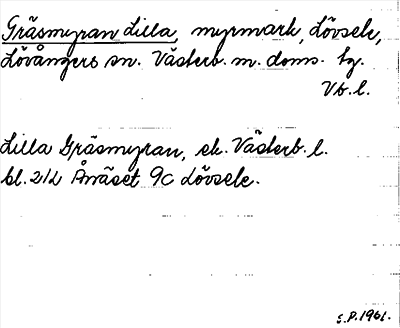 Gräsmyran Lilla, myrmark, Lövsele,
Lövångers sn. Västerb. m. doms. tg.
Vb. l.
Lilla Gräsmyran, ek. Västerb. l.
bl. 212 Ånäset 9c Lövsele.
S.P. 1961.